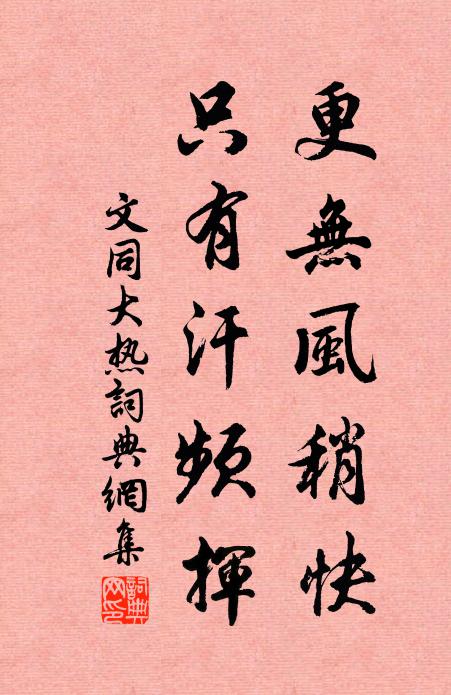 更無風稍快
只有汗頻揮
文同大热詞典網集
詞典网印